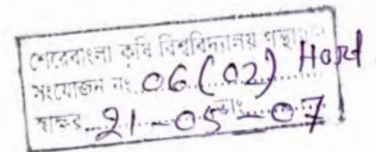 শেরেবাংলা কৃষি বিশ্ববিদ্যালয় গ্রন্থাগার
সংযোজন নং 06(02) Hord
স্বাক্ষর 21-05-07